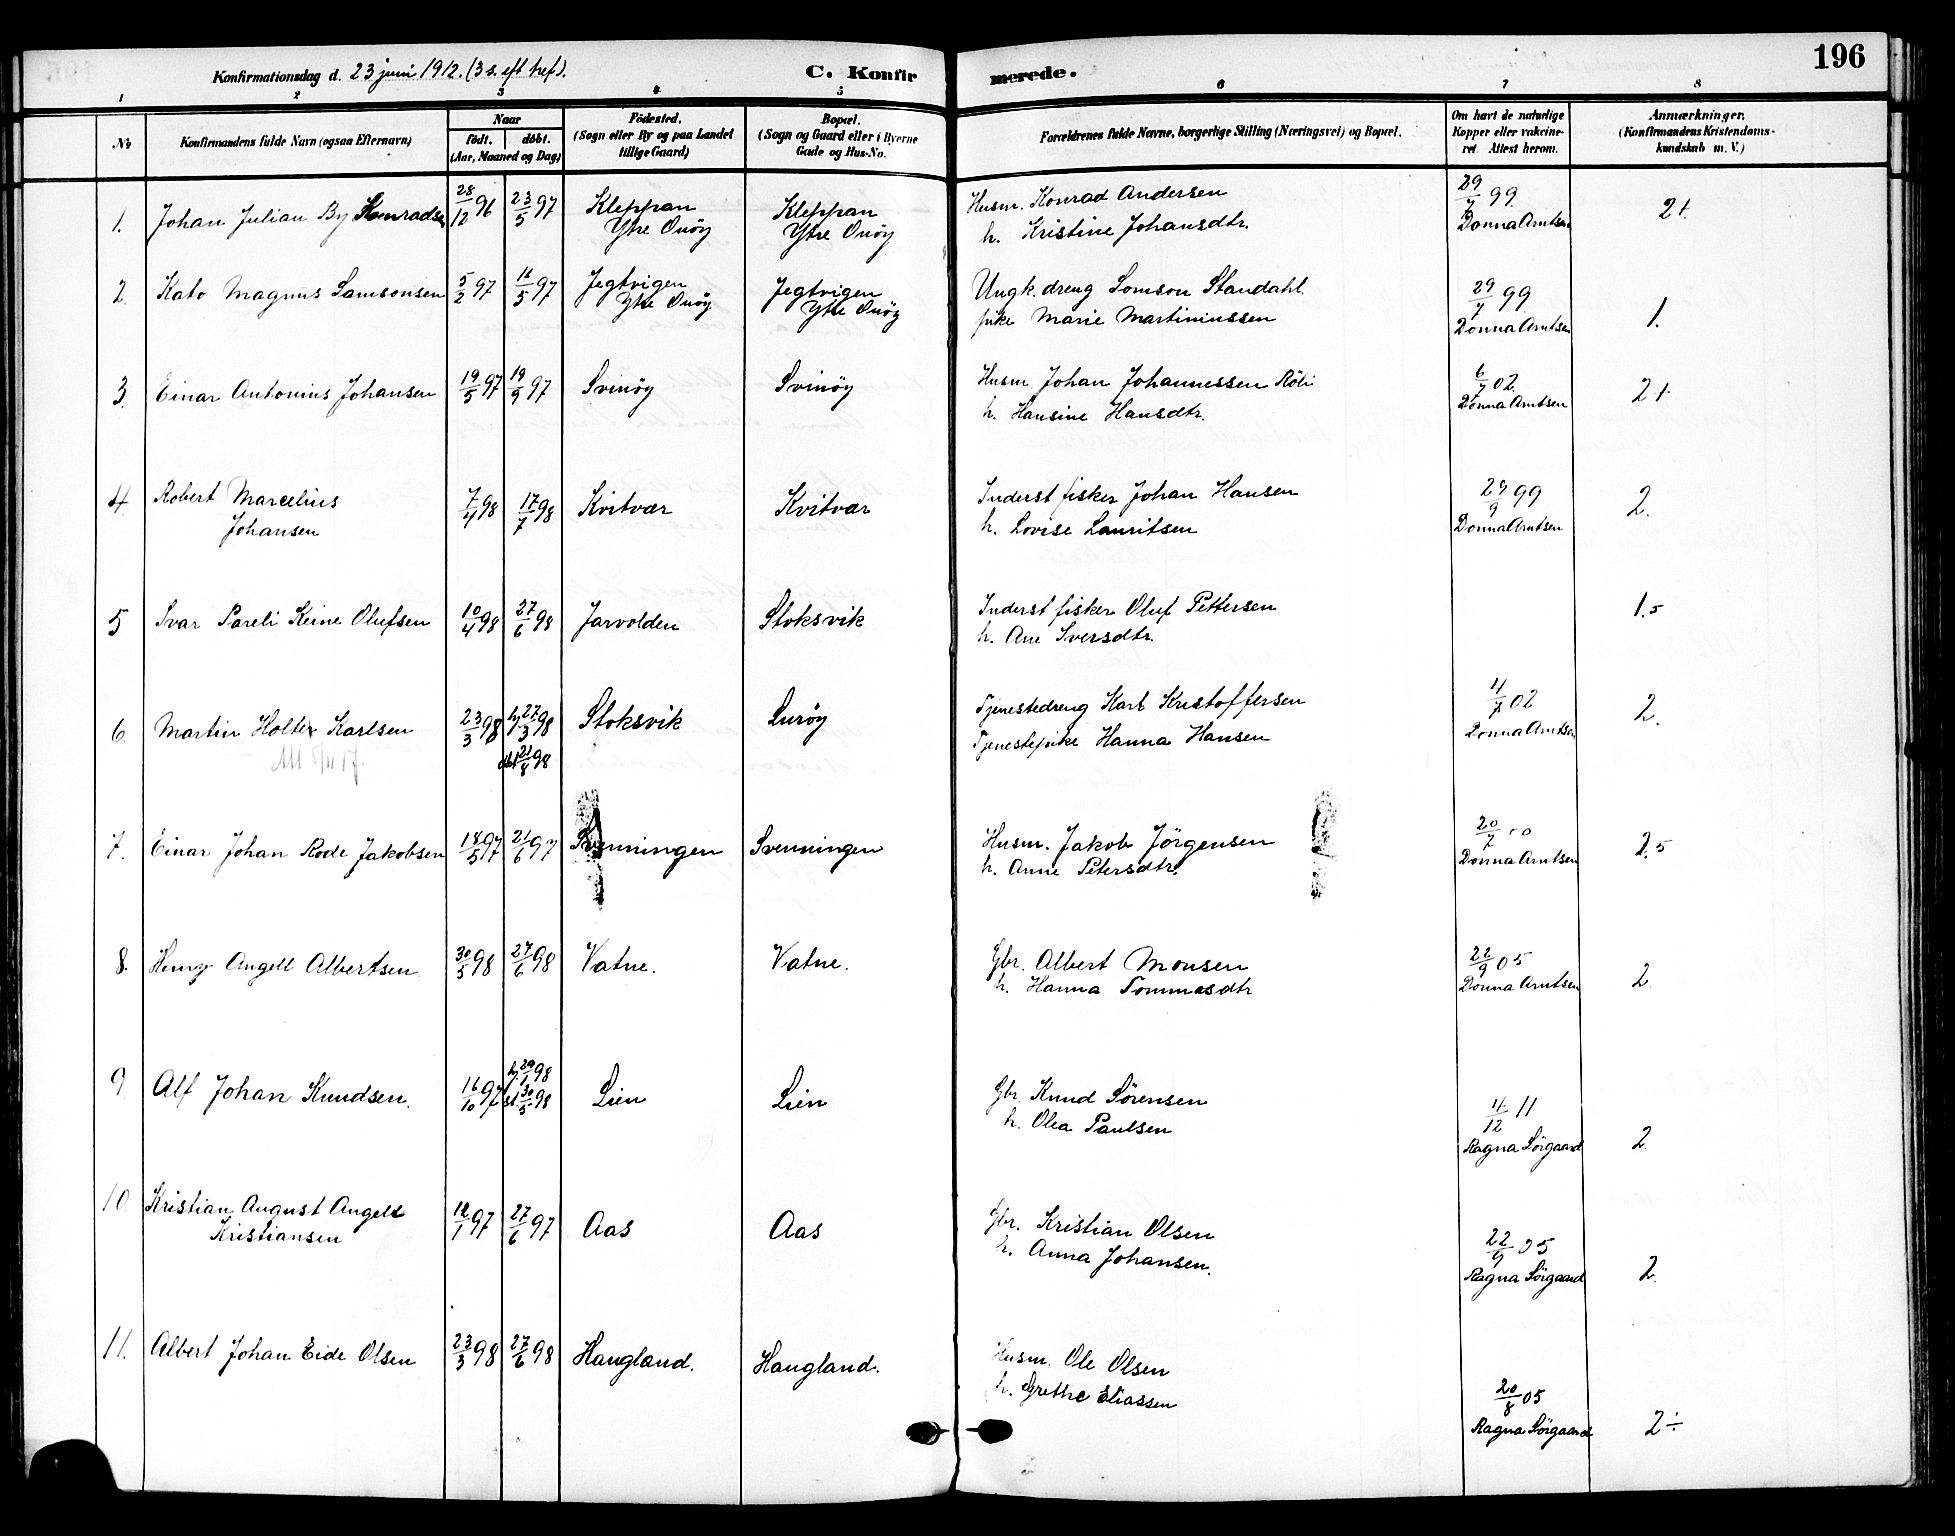 196
Konfirmationsdag d. 23 juni 1912. (3 s. eft tref).
C. Konfirmerede.
1 2 3 4 5 6 7 8
No
Konfirmandens fulde Navn (ogsaa Efternavn)
Naar
født. døbt.
(Aar, Maaned og Dag)
Fødested.
(Sogn eller By og paa Landet
tillige Gaard)
Bopæl.
(Sogn og Gaard eller i Byerne
Gade og Hus-No.
Forældrenes fulde Navne, borgerlige Stilling (Næringsvei) og Bopæl.
Om havt de naturlige
Kopper eller vakcine-
ret. Attest herom.
Anmærkninger.
(Konfirmandens Kristendoms-
kundskab m. V.)
1. Johan Julian By Konradsen 28/12 96 23/5 97 Kleppan
Ytre Onøy
Kleppan
Ytre Onøy
Husm. Konrad Andersen
h. Kristine Johansdtr.
29/7 99.
Donna Arntsen
2+.
2. Kato Magnus Samsonsen 5/2 97 16/5 97 Jegtvigen
Ytre Onøy
Jegtvigen
Ytre Onøy
Ungk. dreng Somson Standahl.
pike Marie Martiniussen
29/7 99
Donna Arntsen
1.
3. Einar Antonius Johansen 19/5 97 19/9 97 Svinøy Svinøy
Husm. Johan Johannessen
h. Hansine Hansdtr.
6/7 02.
Donna Arntsen
2+
4. Robert Marcelius
Johansen
7/4 98 17/7 98 Kvitvær Kvitvær
Inderst fisker Johan Hansen
h. Lovise Lauritsen
29/9 99
Donna Arntsen
2.
5 Ivar Pareli Keine Olufsen 10/4 98 27/6 98 Jarvolden Stoksvik
Inderst fisker Oluf Pettersen
h. Ane Iversdtr.
1.5
6. Martin Holter Karlsen 23/3 98 hj 27/3 98
21/8 98
Stoksvik Lurøy
Tjenestedreng Karl Kristoffersen
Tjenestepike Hanna Hansen
4/7 02
Donna Arntsen
2.
7. Einar Johan Rode Jakobsen 18/5 97 21/6 97 Svenningen Svenningen
Husm. Jakob Jörgensen
h. Anne Petersdtr.
20/7 00
Donna Arntsen
2.5
8. Angell Albertsen 30/5 98 27/6 98 Vatne. Vatne.
Gbr. Albert Monsen
h. Hanna Tommasdtr
22/9 05
Donna Arntsen
2.
9 Alf Johan Knudsen. 16/10 97 hj 29/1 98
st 30/5 98
Lien Lien
Gbr. Knud Sörensen
h. Olea Paulsen
4/12 11
Ragna Sörgaard
2.
10. Kristian August Angell
Kristiansen
12/1 97 27/6 97 Aas Aas
Gbr. Kristian Olsen
h. Anna Johansen.
22/9 05
Ragna Sörgaard
2.
11. Albert Johan Eide Olsen 23/3 98 27/6 98 Haugland. Haugland.
Husm. Ole Olsen
h. Grethe Eliassen
20/8 05
Ragna Sörgaard
2÷